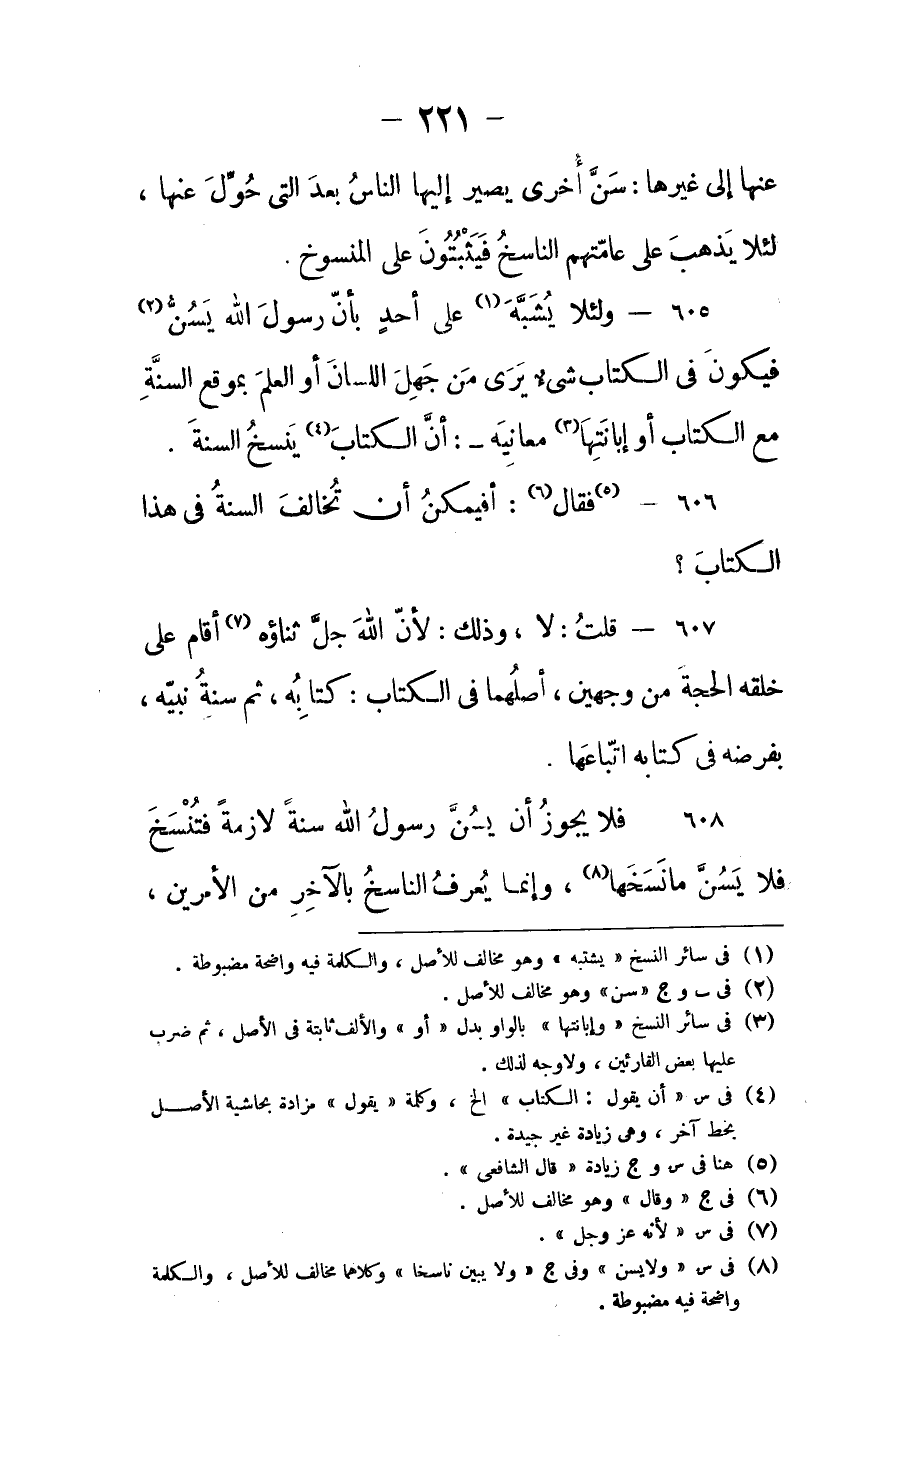 — ٢٢١ —
عنها إلى غيرها : سَنَّ أُخرى يصير إليها الناسُ بعدَ التى حُوِّلَ عنها ،
لئلا يَذهبَ على عامّتهم الناسخُ فَيَثْبُتُونَ على المنسوخ .
٦٠٥ — ولئلا يُشَبَّهَ(١) على أحدٍ بأنّ رسولَ الله يَسُنُّ(٢)
فيكونَ فى الكتاب شىء يَرَى مَن جَهِلَ اللسانَ أو العلمَ بموقع السنَّةِ
مع الكتاب أو إبانَتِهَا(٣) معانِيَه ـ : أنَّ الكتابَ(٤) يَنسخُ السنةَ .
٦٠٦ — (٥)فقال(٦) : أفيمكنُ أن تُخالفَ السنةُ فى هذا
الكتابَ ؟
٦٠٧ — قلتُ : لا ، وذلك : لأنّ اللهَ جلَّ ثناؤه(٧) أقام على
خلقه الحجةَ من وجهين ، أصلُهما فى الكتاب : كتابِهُ ، ثم سنةُِ نبيّه ،
بفرضه فى كتابه اتّباعَها .
٦٠٨ فلا يجوزُ أن يسُنَّ رسولُ الله سنةً لازمةً فتُنْسَخَ
فلا يَسُنَّ مانَسَخَها(٨) ، وإنما يُعرفُ الناسخُ بالآخِرِ من الأمرين ،
(١) فى سائر النسخ « يشتبه » وهو مخالف للأصل ، والكلمة فيه واضحة مضبوطة .
(٢) فى ب و ج «سن» وهو مخالف للأصل .
(٣) فى سائر النسخ « وإبانتها » بالواو بدل « أو » والألف ثابتة فى الأصل ، ثم ضرب
عليها بعض القارئين ، ولاوجه لذلك .
(٤) فى س « أن يقول : الكتاب » الخ ، وكلمة « يقول » مزادة بحاشية الأصل
بخط آخر ، وهى زيادة غير جيدة .
(٥) هنا فى س و ج زيادة « قال الشافعى » .
(٦) فى ج « وقال » وهو مخالف للأصل .
(٧) فى س « لأنه عز وجل » .
(٨) فى س « ولايسن » وفى ج « ولا يبين ناسخا » وكلاهما مخالف للأصل ، والكلمة
واضحة فيه مضبوطة .